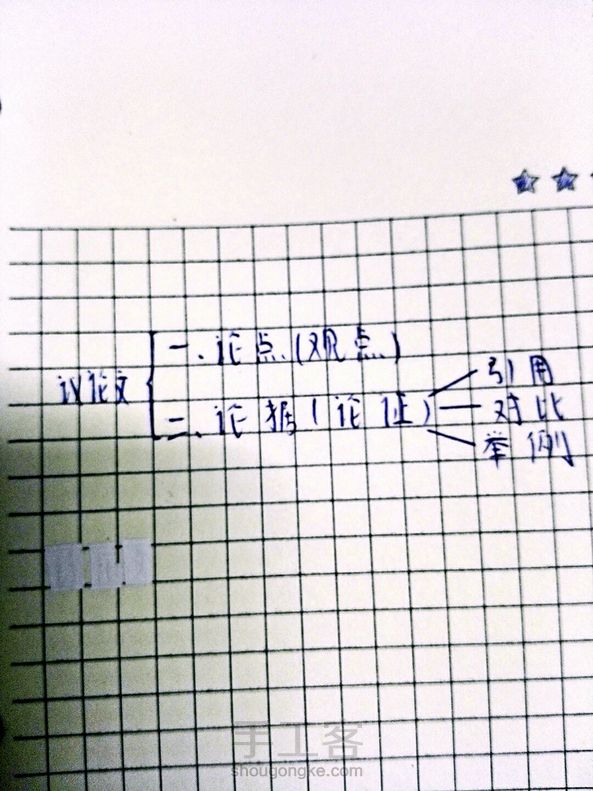 一、论点(观点)
议论文
引用
二、论据(论证) 对比
举例
手工客
shougongke.com